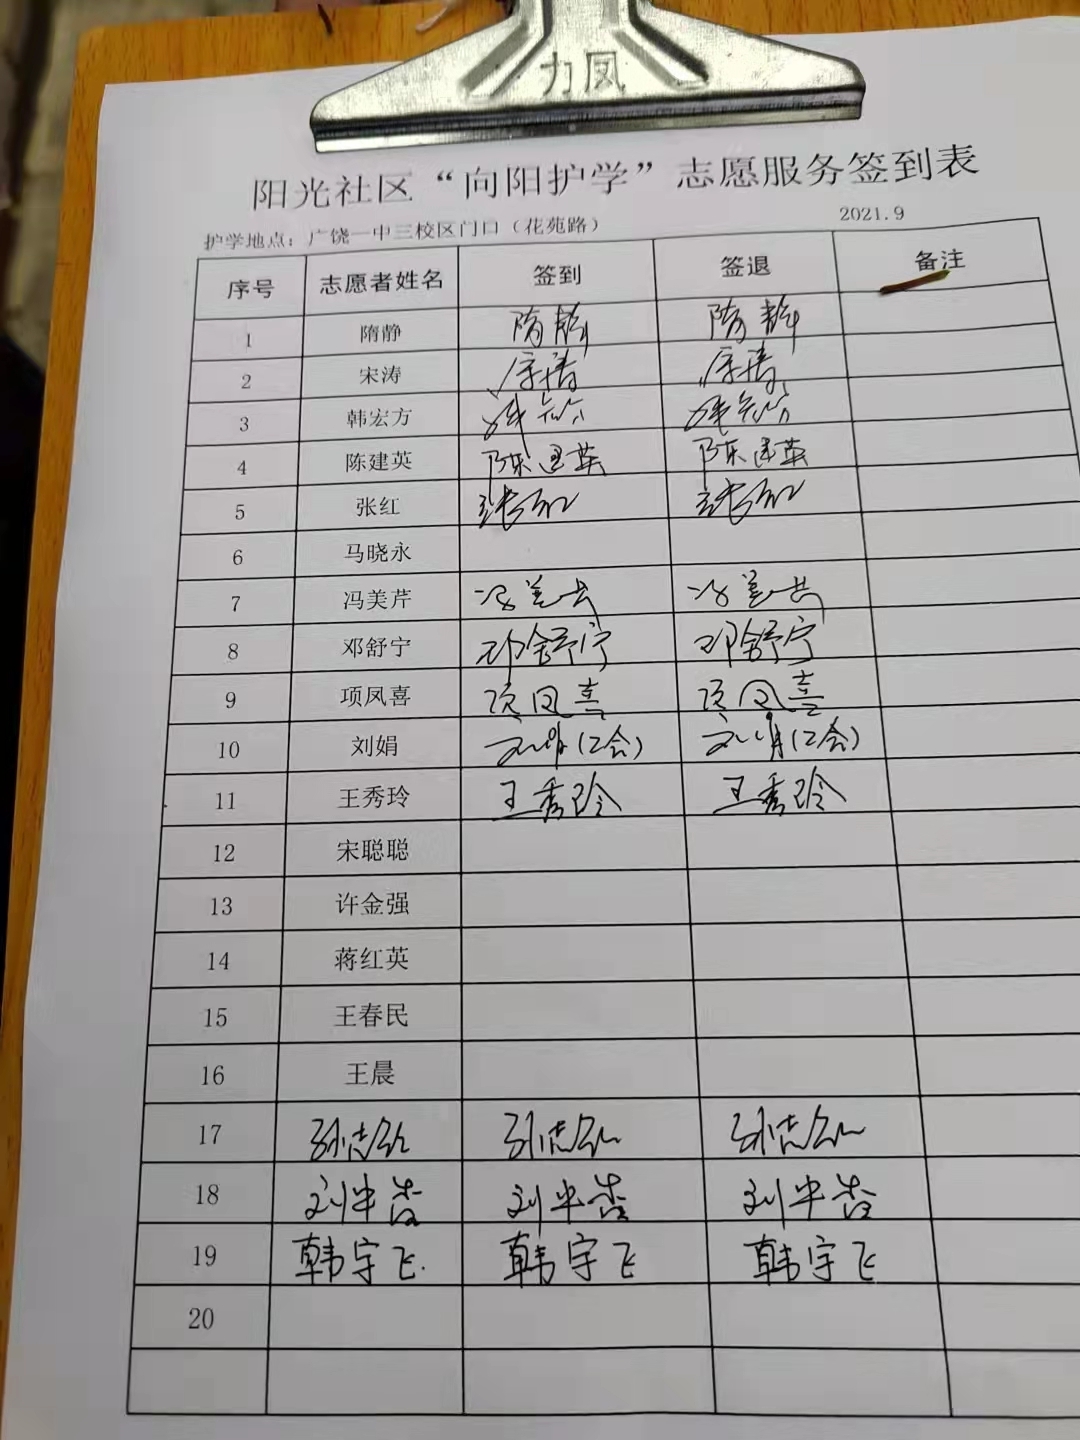 力凤
阳光社区“向阳护学”志愿服务签到表
护学地点：广饶一中三校区门口（花苑路） 2021.9
序号 志愿者姓名 签到 签退 备注
1 隋静 隋静 隋静
2 宋涛 宋涛 宋涛
3 韩宏方
4 陈建英 陈建英 陈建英
5 张红 张红 张红
6 马晓永
7 冯美芹 冯美芹 冯美芹
8 邓舒宁 邓舒宁 邓舒宁
9 项凤喜 项凤喜 项凤喜
10 刘娟 刘娟(工会) 刘娟(工会)
11 王秀玲 王秀玲 王秀玲
12 宋聪聪
13 许金强
14 蒋红英
15 王春民
16 王晨
17
18
19 韩宇飞 韩宇飞 韩宇飞
20